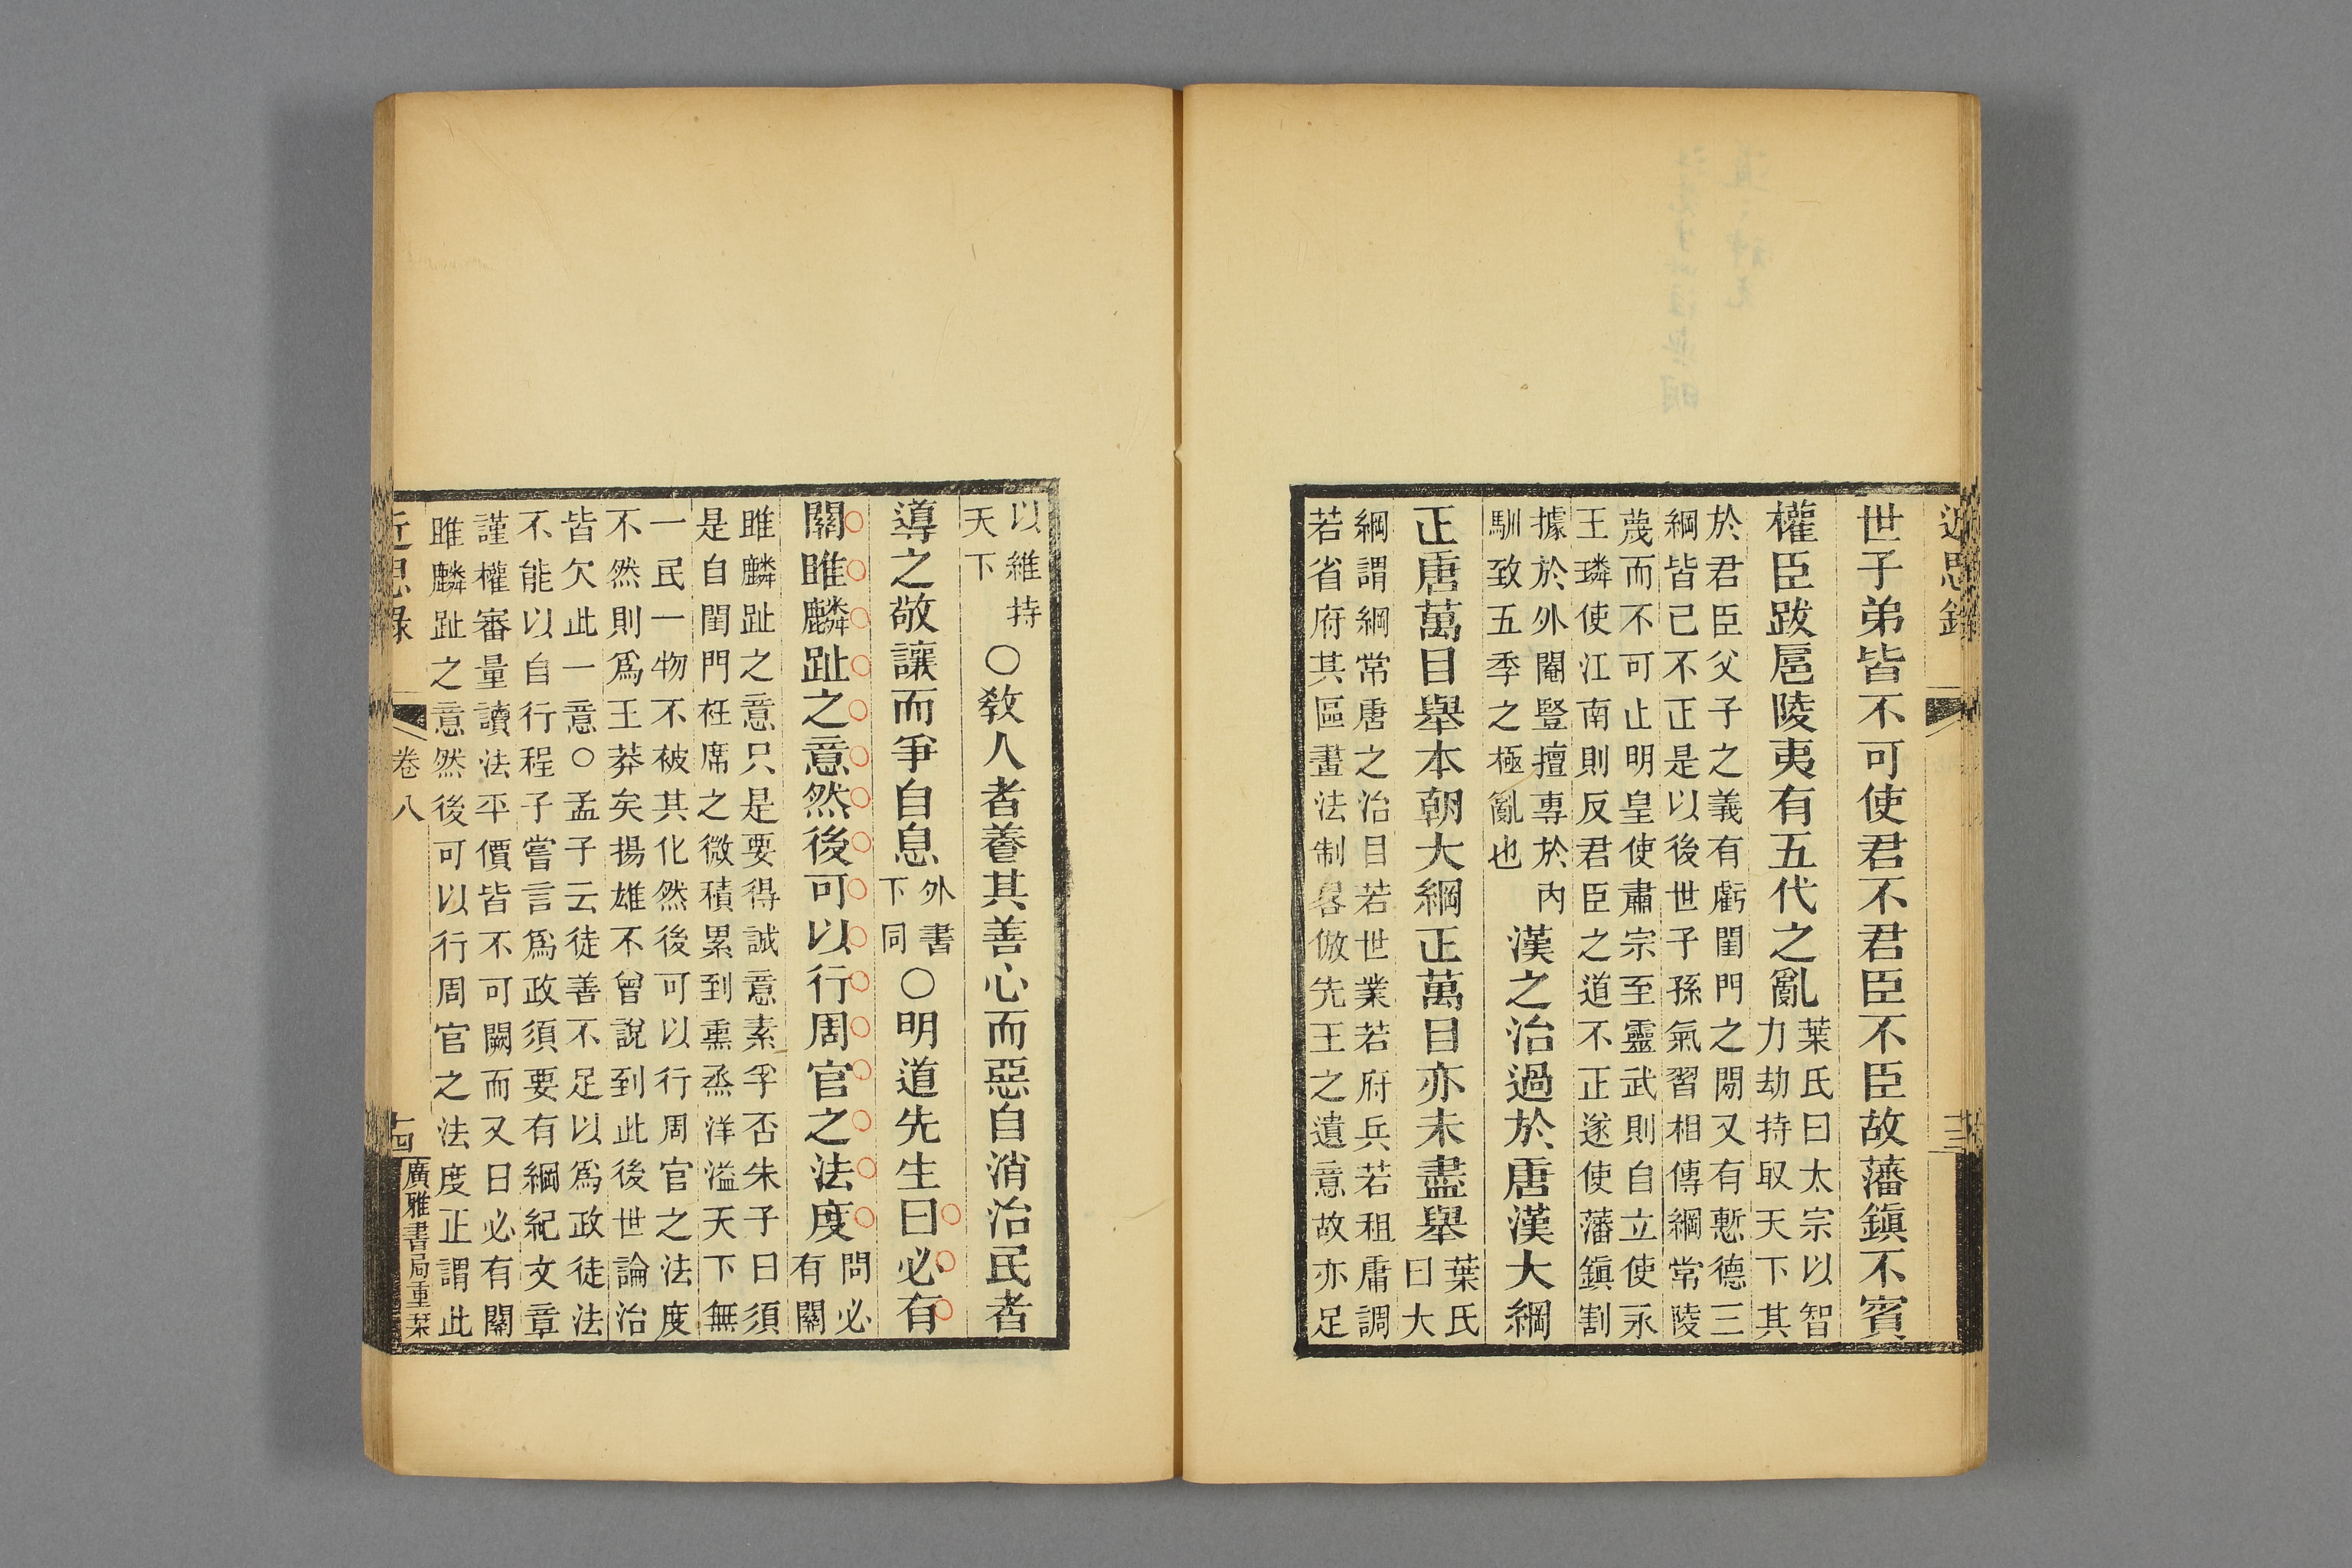 近思錄
十三
世子弟皆不可使君不君臣不臣故藩鎮不賓
權臣跋扈陵夷有五代之亂
葉氏曰太宗以智
力劫持取天下其
於君臣父子之義有虧閨門之閒又有慙德三
綱皆已不正是以後世子孫氣習相傳綱常陵
蔑而不可止明皇使肅宗至靈武則自立使永
王璘使江南則反君臣之道不正遂使藩鎮割
據於外閹豎擅專於內
馴致五季之極亂也
漢之治過於唐漢大綱
正唐萬目舉本朝大綱正萬目亦未盡舉
葉氏
曰大
綱謂綱常唐之治目若世業若府兵若租庸調
若省府其區畫法制畧倣先王之遺意故亦足
以維持
天下
○敎人者養其善心而惡自消治民者
導之敬讓而爭自息
外書
下同
○明道先生曰必有
關雎麟趾之意然後可以行周官之法度
問必
有關
雎麟趾之意只是要得誠意素孚否朱子曰須
是自閨門袵席之微積累到熏烝洋溢天下無
一民一物不被其化然後可以行周官之法度
不然則爲王莽矣揚雄不曾說到此後世論治
皆欠此一意○孟子云徒善不足以爲政徒法
不能以自行程子嘗言爲政須要有綱紀文章
謹權審量讀法平價皆不可闕而又曰必有關
雎麟趾之意然後可以行周官之法度正謂此
近思錄
卷八
十四
廣雅書局重栞